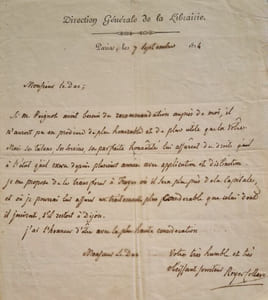 Direction Générale de la Librairie.
Paris, le 7 septembre 1814
Monsieur le Duc,
Si M. Peignot avait besoin de recommandation auprès de moi, il
n'aurait pu en produire de plus honorable et de plus utile que la vôtre.
Mais ses talens, ses services, sa parfaite honnêteté lui assurent des droits qu'à
l'état qu'il exerce depuis plusieurs années avec application et distinction
je me propose de le transférer à Troyes où il sera plus près de la capitale,
et où je pourrai lui assurer un traitement plus considérable que celui dont
il jouirait, s'il restait à Dijon.
j'ai l'honneur d'être avec la plus haute considération
Monsieur le Duc
Votre très humble et très
obéissant serviteur Royer-Collard